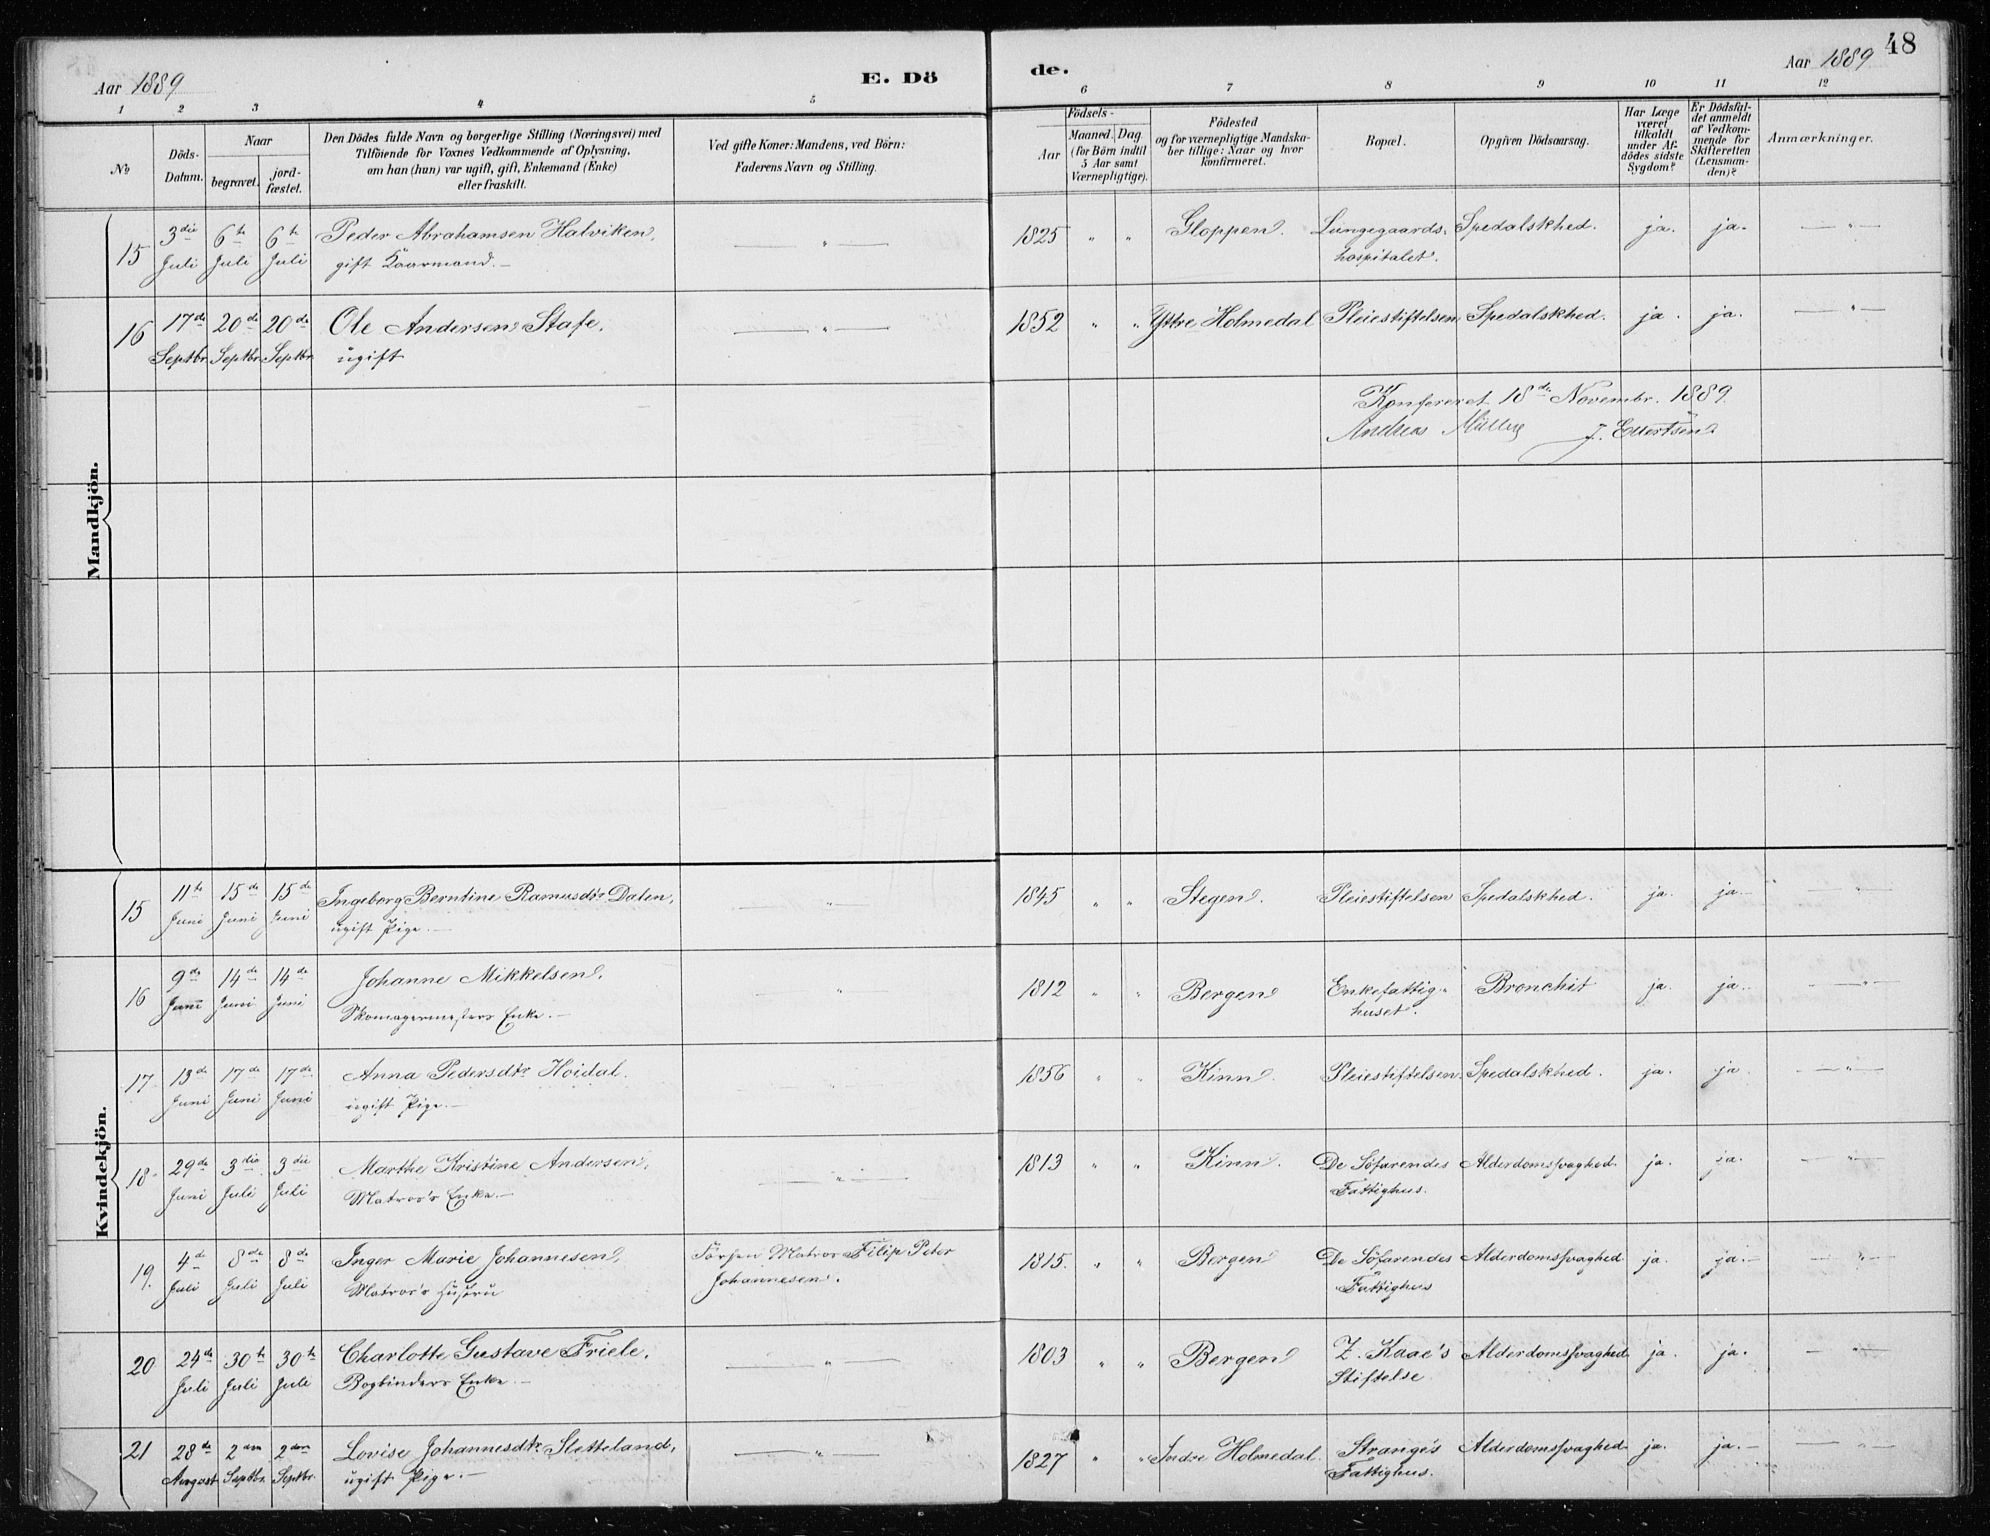 48
Aar 1889 E. Dö de. Aar 1889
1 2 3 4 5 6 7 8 9 10 11 12
No
Döds-Datum.
Naar
begravet.
jord-fæstet.
Den Dödes fulde Navn og borgerlige Stilling (Næringsvei) med
Tilföiende for Voxnes Vedkommende af Oplysning,
om han (hun) var ugift, gift, Enkemand (Enke)
eller fraskilt.
Ved gifte Koner: Mandens, ved Börn:
Faderens Navn og Stilling.
Födsels-
Aar
Maaned. Dag.
(for Börn indtil
5 Aar samt
Værnepligtige).
Födested
og for værnepligtige Mandska-
ber tillige: Naar og hvor
konfirmeret.
Bopæl.
Opgiven Dödsaarsag.
Har Læge
været
tilkaldt
under Af-
dödes sidste
Sygdom?
Er Dödsfal-
det anmeldt
af Vedkom-
mende for
Skifteretten
(Lensman-
den)?
Anmærkninger.
Mandkjön.
15 3die Juli 6te Juli 6te Juli Peder Abrahamsen Halviken, — " — 1825 " " Gloppen. Lungegaards- Spedalskhed. ja. ja. — " —
gift Kaarmand. — hospitalet.
16 17de Septbr 20de Septbr 20de Septbr Ole Andersen Stafe, — " — 1852 " " Yttre Holmedal Pleiestiftelsen Spedalskhed. ja. ja. — " —
ugift
Konfereret 18de Novembr. 1889.
Andreas Müller J. Ellertsen
Kvindekjön.
15 11te Juni 15de Juni 15de Juni Ingeborg Berntine Ramusdtr Dalen, — " — 1845 " " Stegen. Pleiestiftelsen Spedalskhed. ja. ja. — " —
ugift Pige. —
16 9de Juni 14de Juni 14de Juni Johanne Mikkelsen, " 1812 " " Bergen Enkefattig- Bronchit ja. ja. — " —
Skomagermesters Enke. — huset.
17. 13de Juni 17de Juni 17de Juni Anna Pedersdtr Hoidal. " 1856 " " Kinn. Pleiestiftelsen. Spedalskhed. ja. ja — " —
ugift Pige. —
18. 29de Juni 3die Juli 3die Juli Marthe Kristine Andersen, — " — 1813 " " Kinn. De Söfarendes Alderdomssvaghed. ja. ja. — " —
Matros's Enke. — Fattighus.
19. 4de Juli 8de Juli 8de Juli Inger Marie Johannesen, Matros Filip Peter 1815. " " Bergen De Söfarendes Alderdomssvaghed ja. ja. — — " —
Matros's Hustru Johannesen. Fattighus
20 24de Juli 30te Juli 30te Juli Charlotte Gustave Friele, — " — 1803 " " Bergen Z. Kaae's Alderdomssvaghed. ja. ja. — " —
Bogbinders Enke. — Stiftelse
21 28de August 2den Septbr. 2den Septbr. Lovise Johannesdtr Sletteland, — " — 1827 " " Indre Holmedal. Strange's Alderdomssvaghed. ja. ja. — — " —
ugift Pige. — Fattighus.